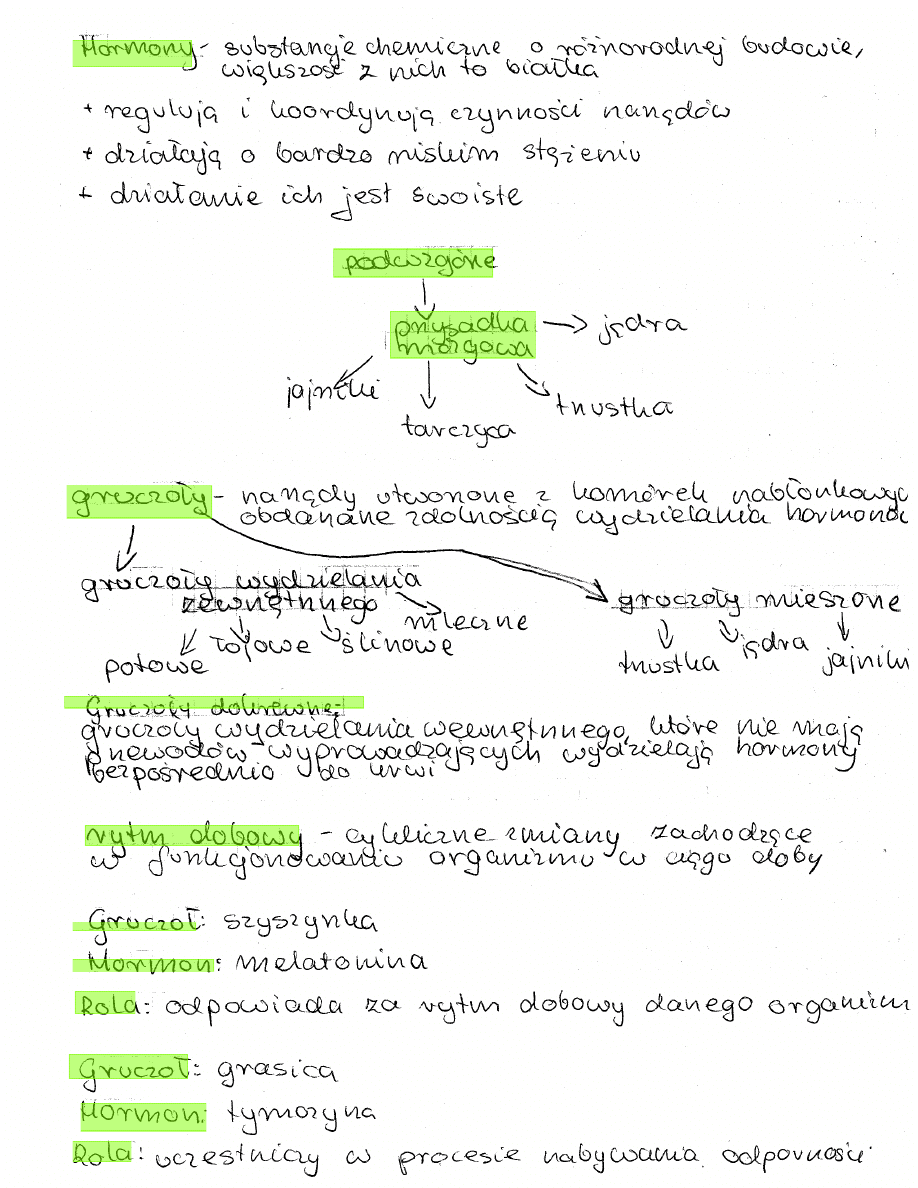 Hormony - substancje chemiczne o różnorodnej budowie,
większość z nich to białka
+ regulują i koordynują czynności narządów
+ działają o bardzo niskim stężeniu
+ działanie ich jest swoiste
podwzgórze
przysadka
mózgowa
jądra
jajniki
trzustka
tarczyca
gruczoły - narządy utworzone z komórek nabłonkowyc
obdarzone zdolnością wydzielania hormonó
gruczoły wydzielania
zewnętrznego
gruczoły mieszone
mleczne
potowe
łojowe
ślinowe
trzustka
jądra
jajniki
Gruczoły dokrewne:
gruczoły wydzielania wewnętrznego, które nie mają
przewodów wyprowadzających wydzielają hormony
bezpośrednio do krwi
rytm dobowy - cykliczne zmiany zachodzące
w funkcjonowaniu organizmu w ciągo doby
Gruczoł: szyszynka
Hormon: melatonina
Rola: odpowiada za rytm dobowy danego organizm
Gruczoł: grasica
Hormon: tymozyna
Rola: uczestniczy w procesie nabywania odporności